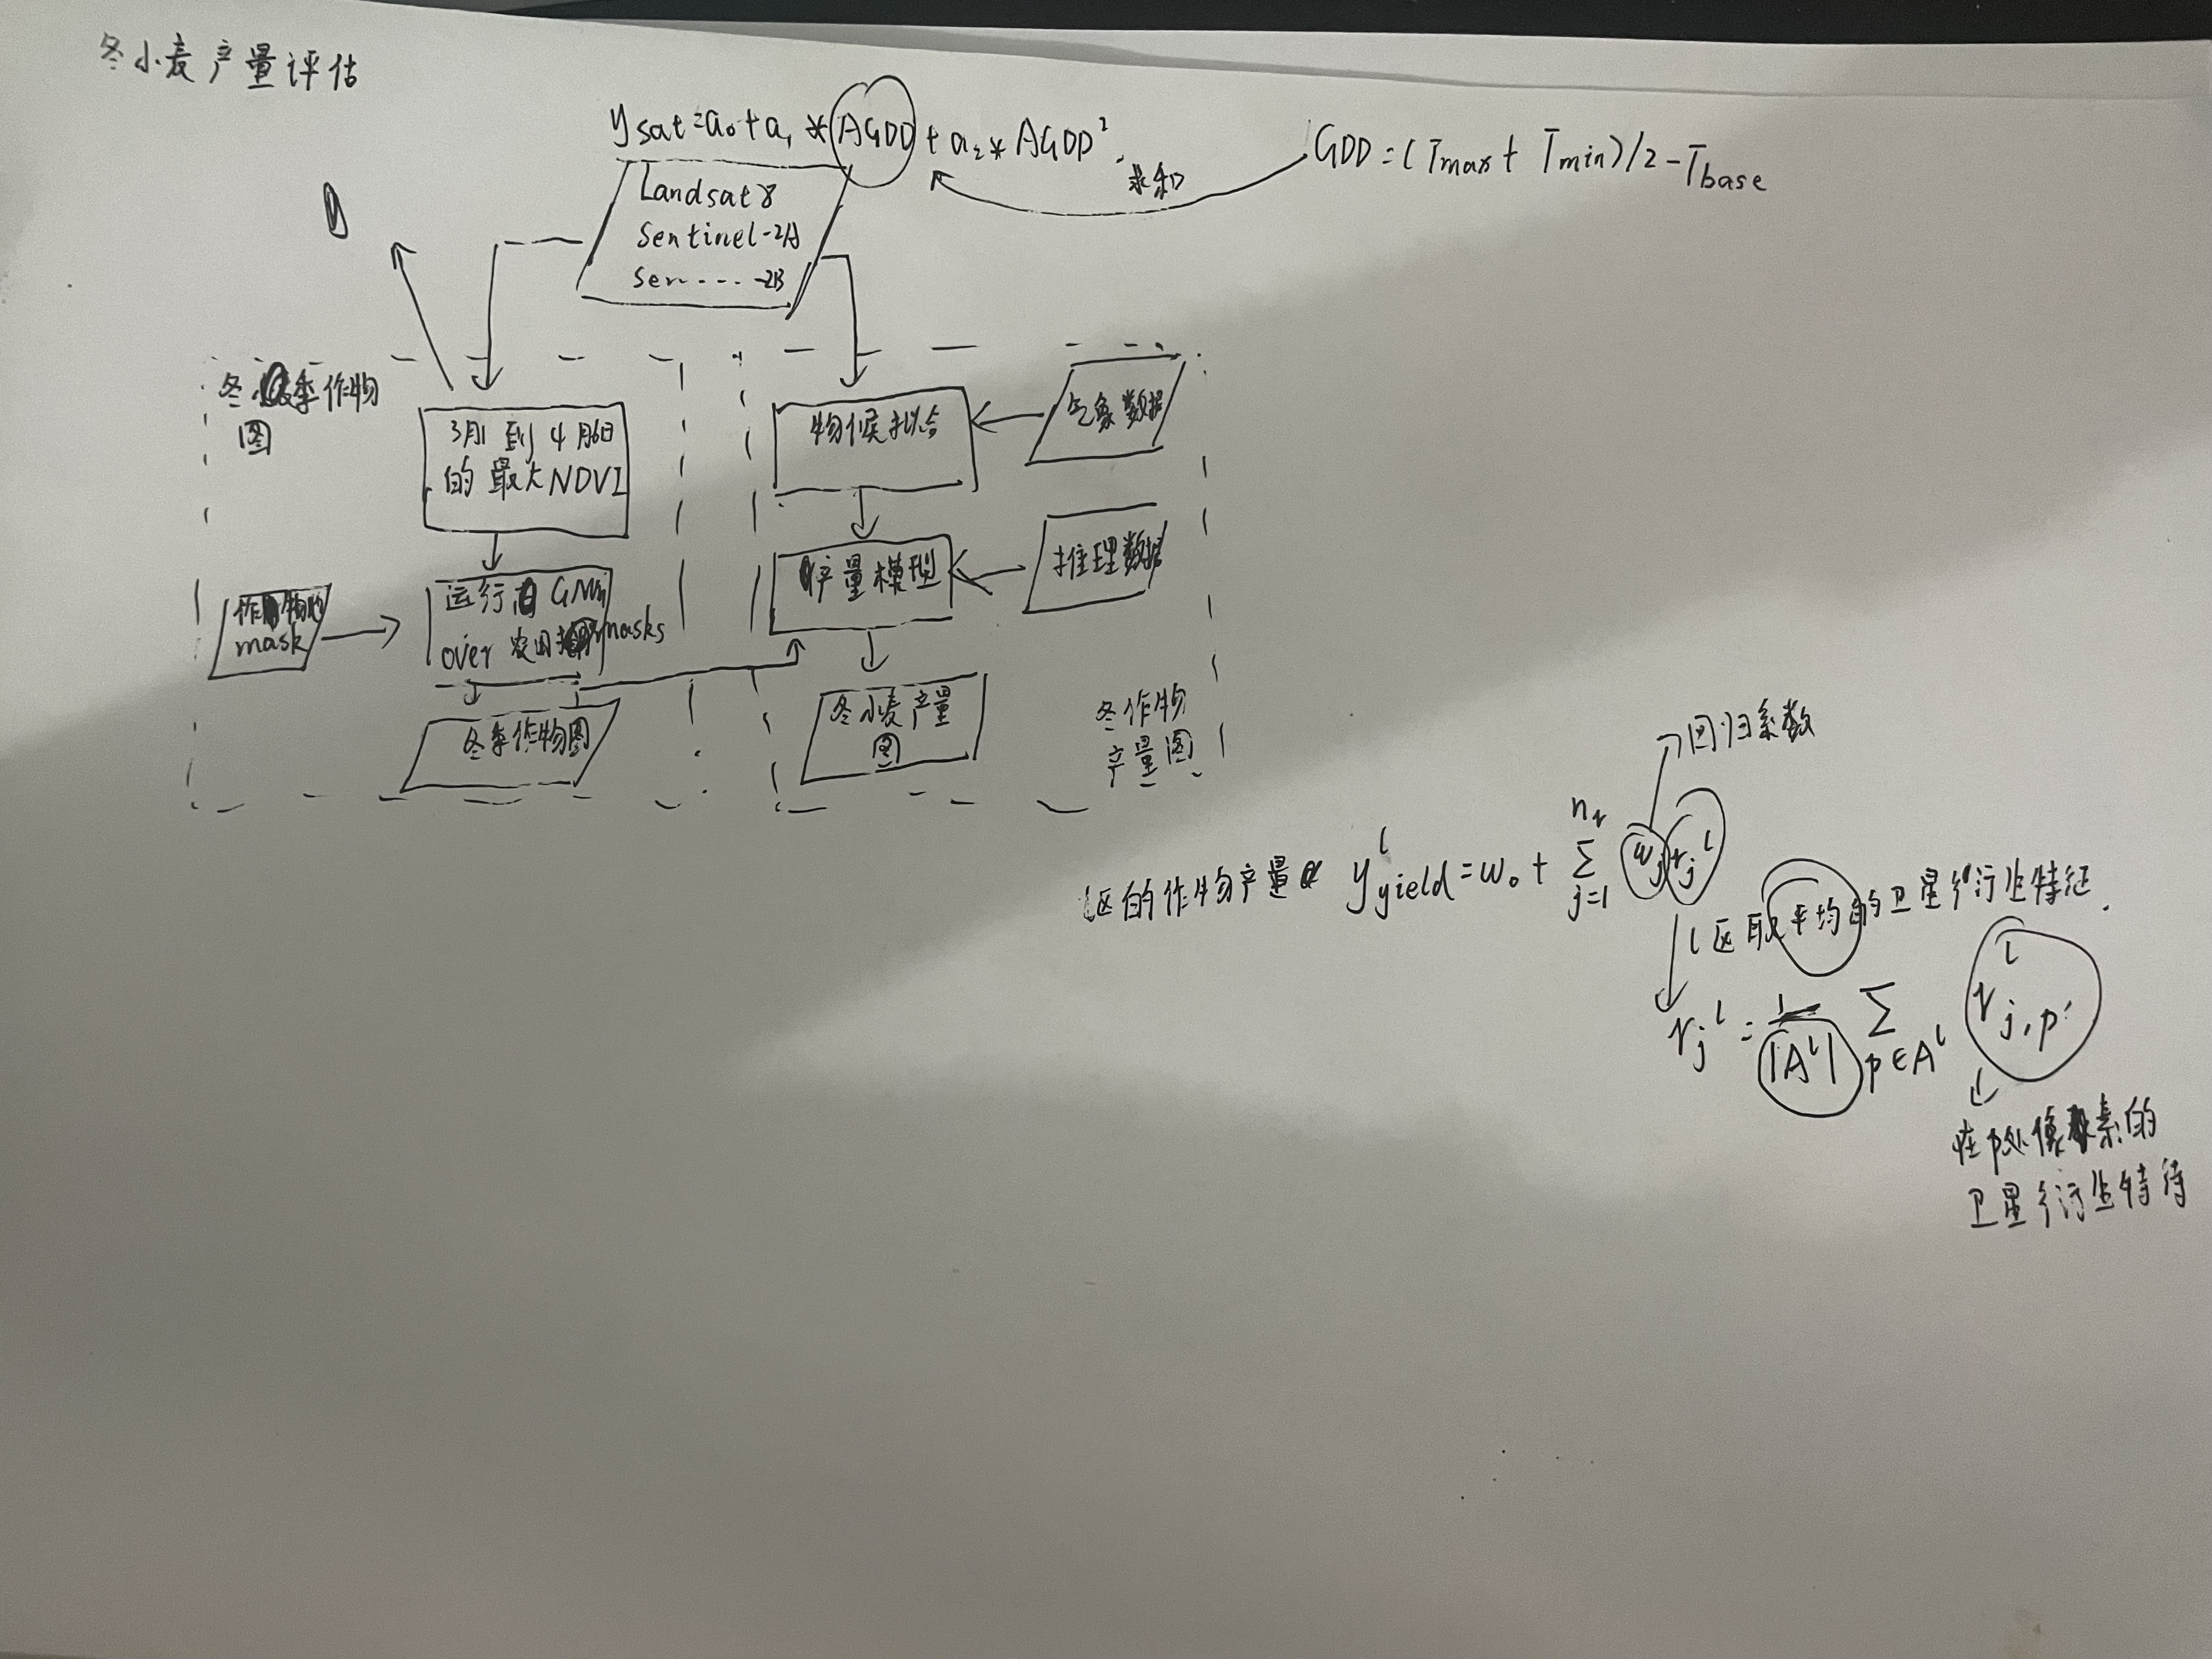 冬小麦产量评估
ysat=a₀+a₁*AGDD+a₂*AGDD²
求和
GDD=(Tmax+Tmin)/2-Tbase
Landsat8
Sentinel-2A
Sen....-2B
冬季作物
图
3月1到4月6日
的最大NDVI
物候拟合
气象数据
作物的
mask
运行 GMM
over 农田 masks
产量模型
推理数据
冬季作物图
冬小麦产量
图
冬作物
产量图
回归系数
l区的作物产量 y^l_yield=w₀+∑_{j=1}^{n_r} w_j r_j^l
l区取平均的卫星衍生特征.
r_j^l=1/|A^l| ∑_{p∈A^l} r^l_{j,p}
在p处像素的
卫星衍生特待